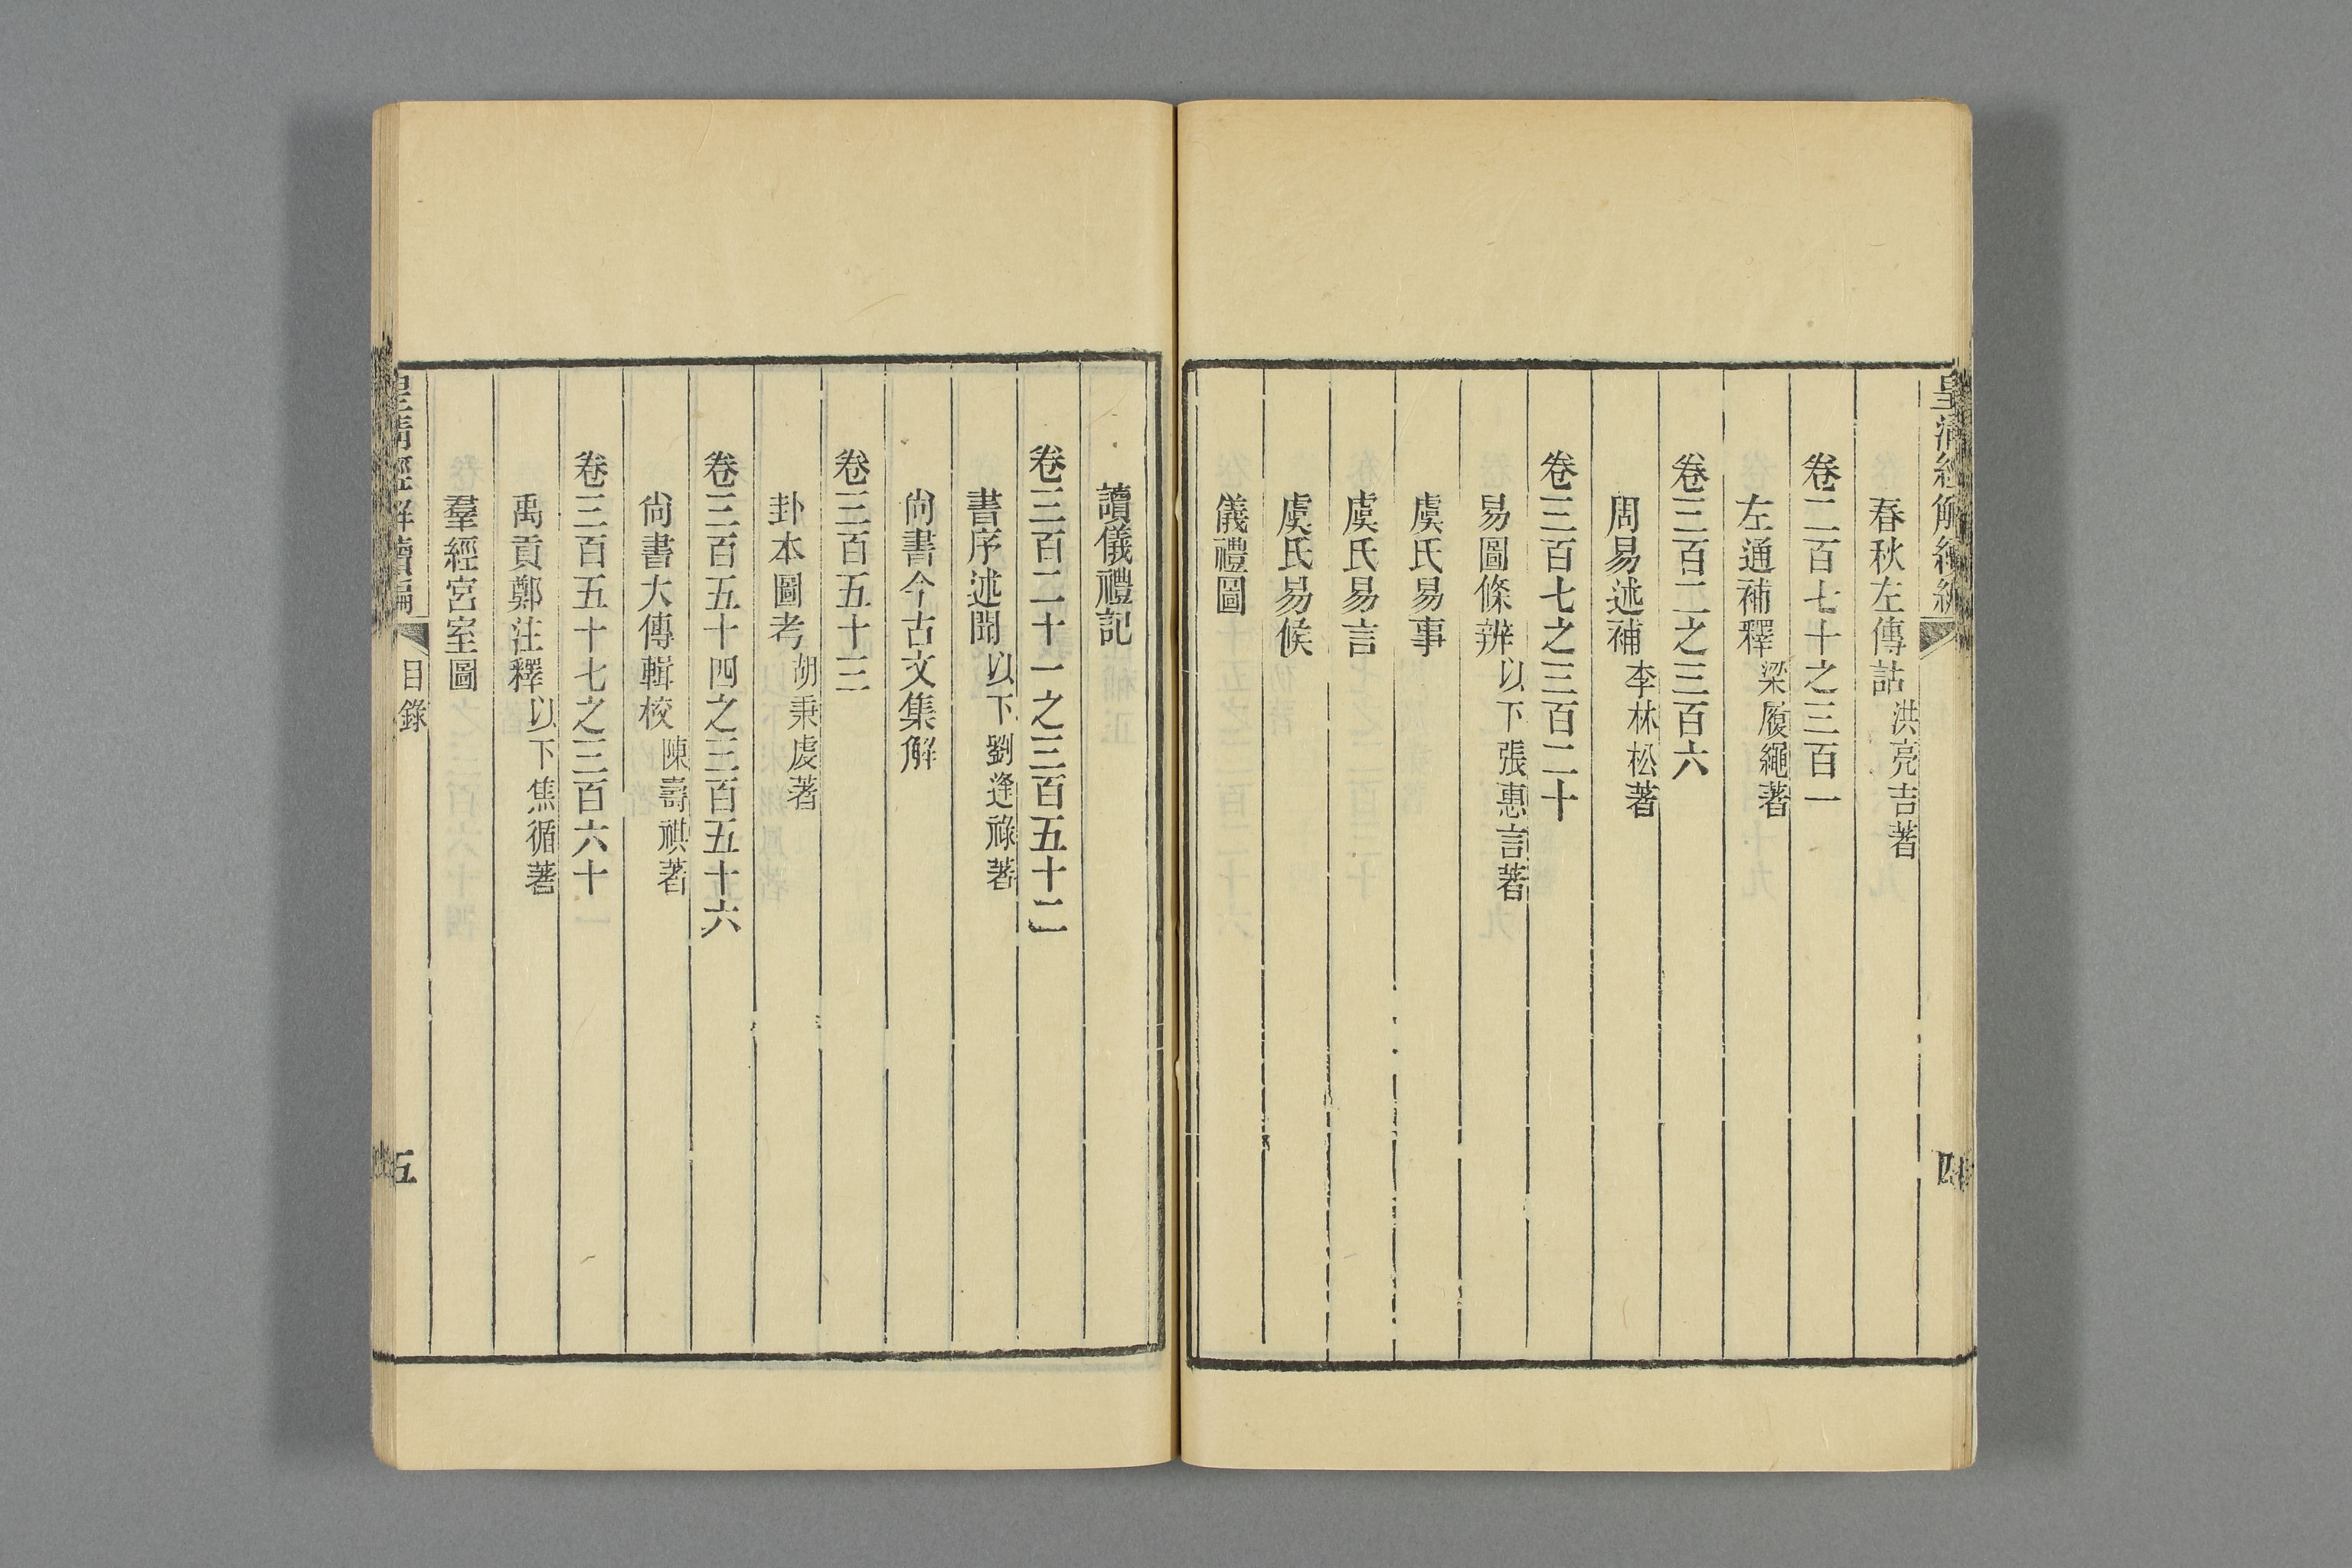 皇清經解續編
四
春秋左傳詁 洪亮吉著
卷二百七十之三百一
左通補釋 梁履繩著
卷三百二之三百六
周易述補 李林松著
卷三百七之三百二十
易圖條辨 以下張惠言著
虞氏易事
虞氏易言
虞氏易候
儀禮圖
讀儀禮記
卷三百二十一之三百五十二
書序述聞 以下劉逢祿著
尙書今古文集解
卷三百五十三
卦本圖考 胡秉虔著
卷三百五十四之三百五十六
尙書大傳輯校 陳壽祺著
卷三百五十七之三百六十
禹貢鄭注釋 以下焦循著
羣經宮室圖
皇淸經解續編 目錄
五